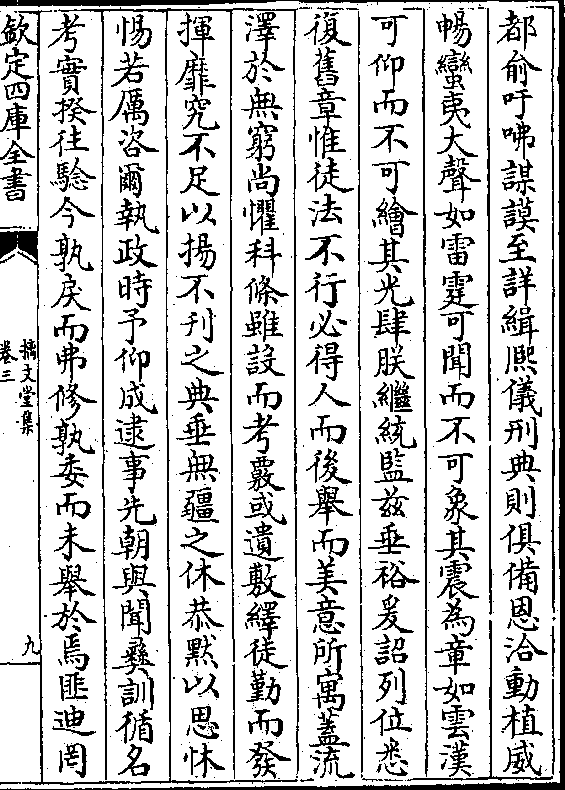 都俞吁咈謀謨至詳緝熈儀刑典則俱備恩洽動植威
暢蠻夷大聲如雷霆可聞而不可象其震為章如雲漢
可仰而不可繪其光肆朕繼統監兹垂裕爰詔列位悉
復舊章惟徒法不行必得人而後舉而美意所寓蓋流
澤於無窮尚懼科條雖設而考覈或遺敷繹徒勤而發
揮靡究不足以揚不刋之典垂無疆之休恭黙以思怵
惕若厲咨爾執政時予仰成逮事先朝與聞彛訓循名
考實揆往驗今孰戾而弗修孰委而未舉於焉匪迪罔
欽定四庫全書
摛文堂集
卷三
九